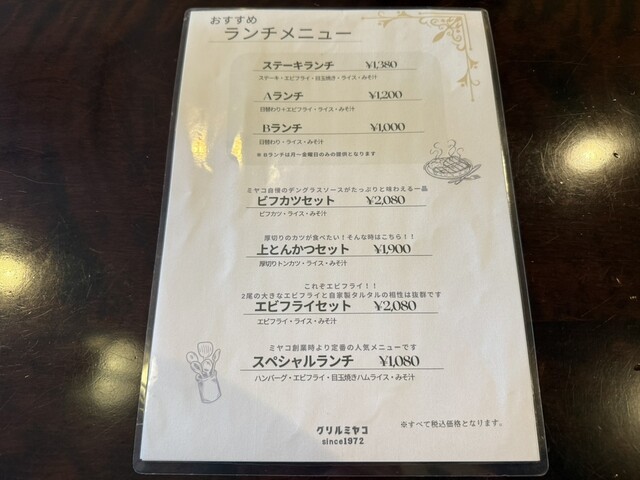 おすすめ
ランチメニュー
ステーキランチ ¥1,380
ステーキ・エビフライ・目玉焼き・ライス・みそ汁
Aランチ ¥1,200
日替わり+エビフライ・ライス・みそ汁
Bランチ ¥1,000
日替わり・ライス・みそ汁
※Bランチは月〜金曜日のみの提供となります
ミヤコ自慢のデングラスソースがたっぷりと味わえる一品
ビフカツセット ¥2,080
ビフカツ・ライス・みそ汁
厚切りのカツが食べたい！そんな時はこちら！！
上とんかつセット ¥1,900
厚切りトンカツ・ライス・みそ汁
これぞエビフライ！！
2尾の大きなエビフライと自家製タルタルの相性は抜群です
エビフライセット ¥2,080
エビフライ・ライス・みそ汁
ミヤコ創業時より定番の人気メニューです
スペシャルランチ ¥1,080
ハンバーグ・エビフライ・目玉焼きハムライス・みそ汁
グリルミヤコ
since1972
※すべて税込価格となります。